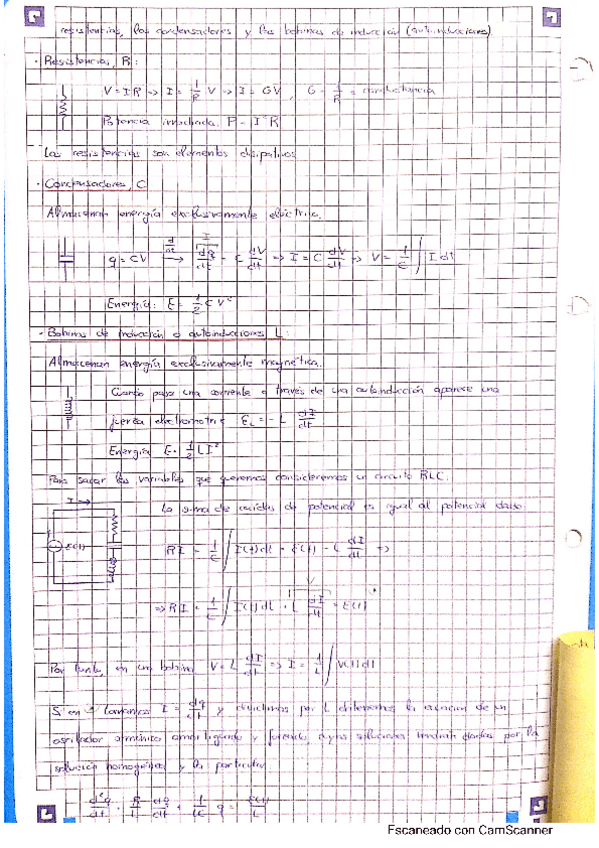 resistencias, los condensadores y las bobinas de inducción (autoinducciones)
· Resistencias, R:
V = IR → I = 1/R V → I = GV, G = 1/R = conductancia
Potencia irradiada P = I²R
Las resistencias son elementos disipativos
· Condensadores, C
Almacenan energía exclusivamente eléctrica.
q = CV d/dt → I dq/dt = C dV/dt ⇒ I = C dV/dt ⇒ V = 1/C ∫ I dt
Energía: E = 1/2 C V²
· Bobinas de inducción o autoinducciones, L:
Almacenan energía exclusivamente magnética.
Cuando pasa una corriente a través de una autoinducción aparece una
fuerza electromotriz ε_L = - L dI/dt
Energía E = 1/2 L I²
Para sacar las variables que queremos consideremos un circuito RLC.
I →
La suma de caídas de potencial es igual al potencial dado
ε(t)
RI + 1/C ∫ I(t) dt = ε(t) - L dI/dt ⇒
V
⇒ RI + 1/C ∫ I(t) dt + L dI/dt = ε(t)
Por tanto, en una bobina V = L dI/dt ⇒ I = 1/L ∫ V(t) dt
Si en * tomamos I = dq/dt y dividimos por L obtenemos la ecuación de un
oscilador armónico amortiguado y forzado cuyas soluciones vendrán dadas por la
solución homogénea y la particular
d²q/dt + R/L dq/dt + 1/LC q = ε(t)/L
Escaneado con CamScanner